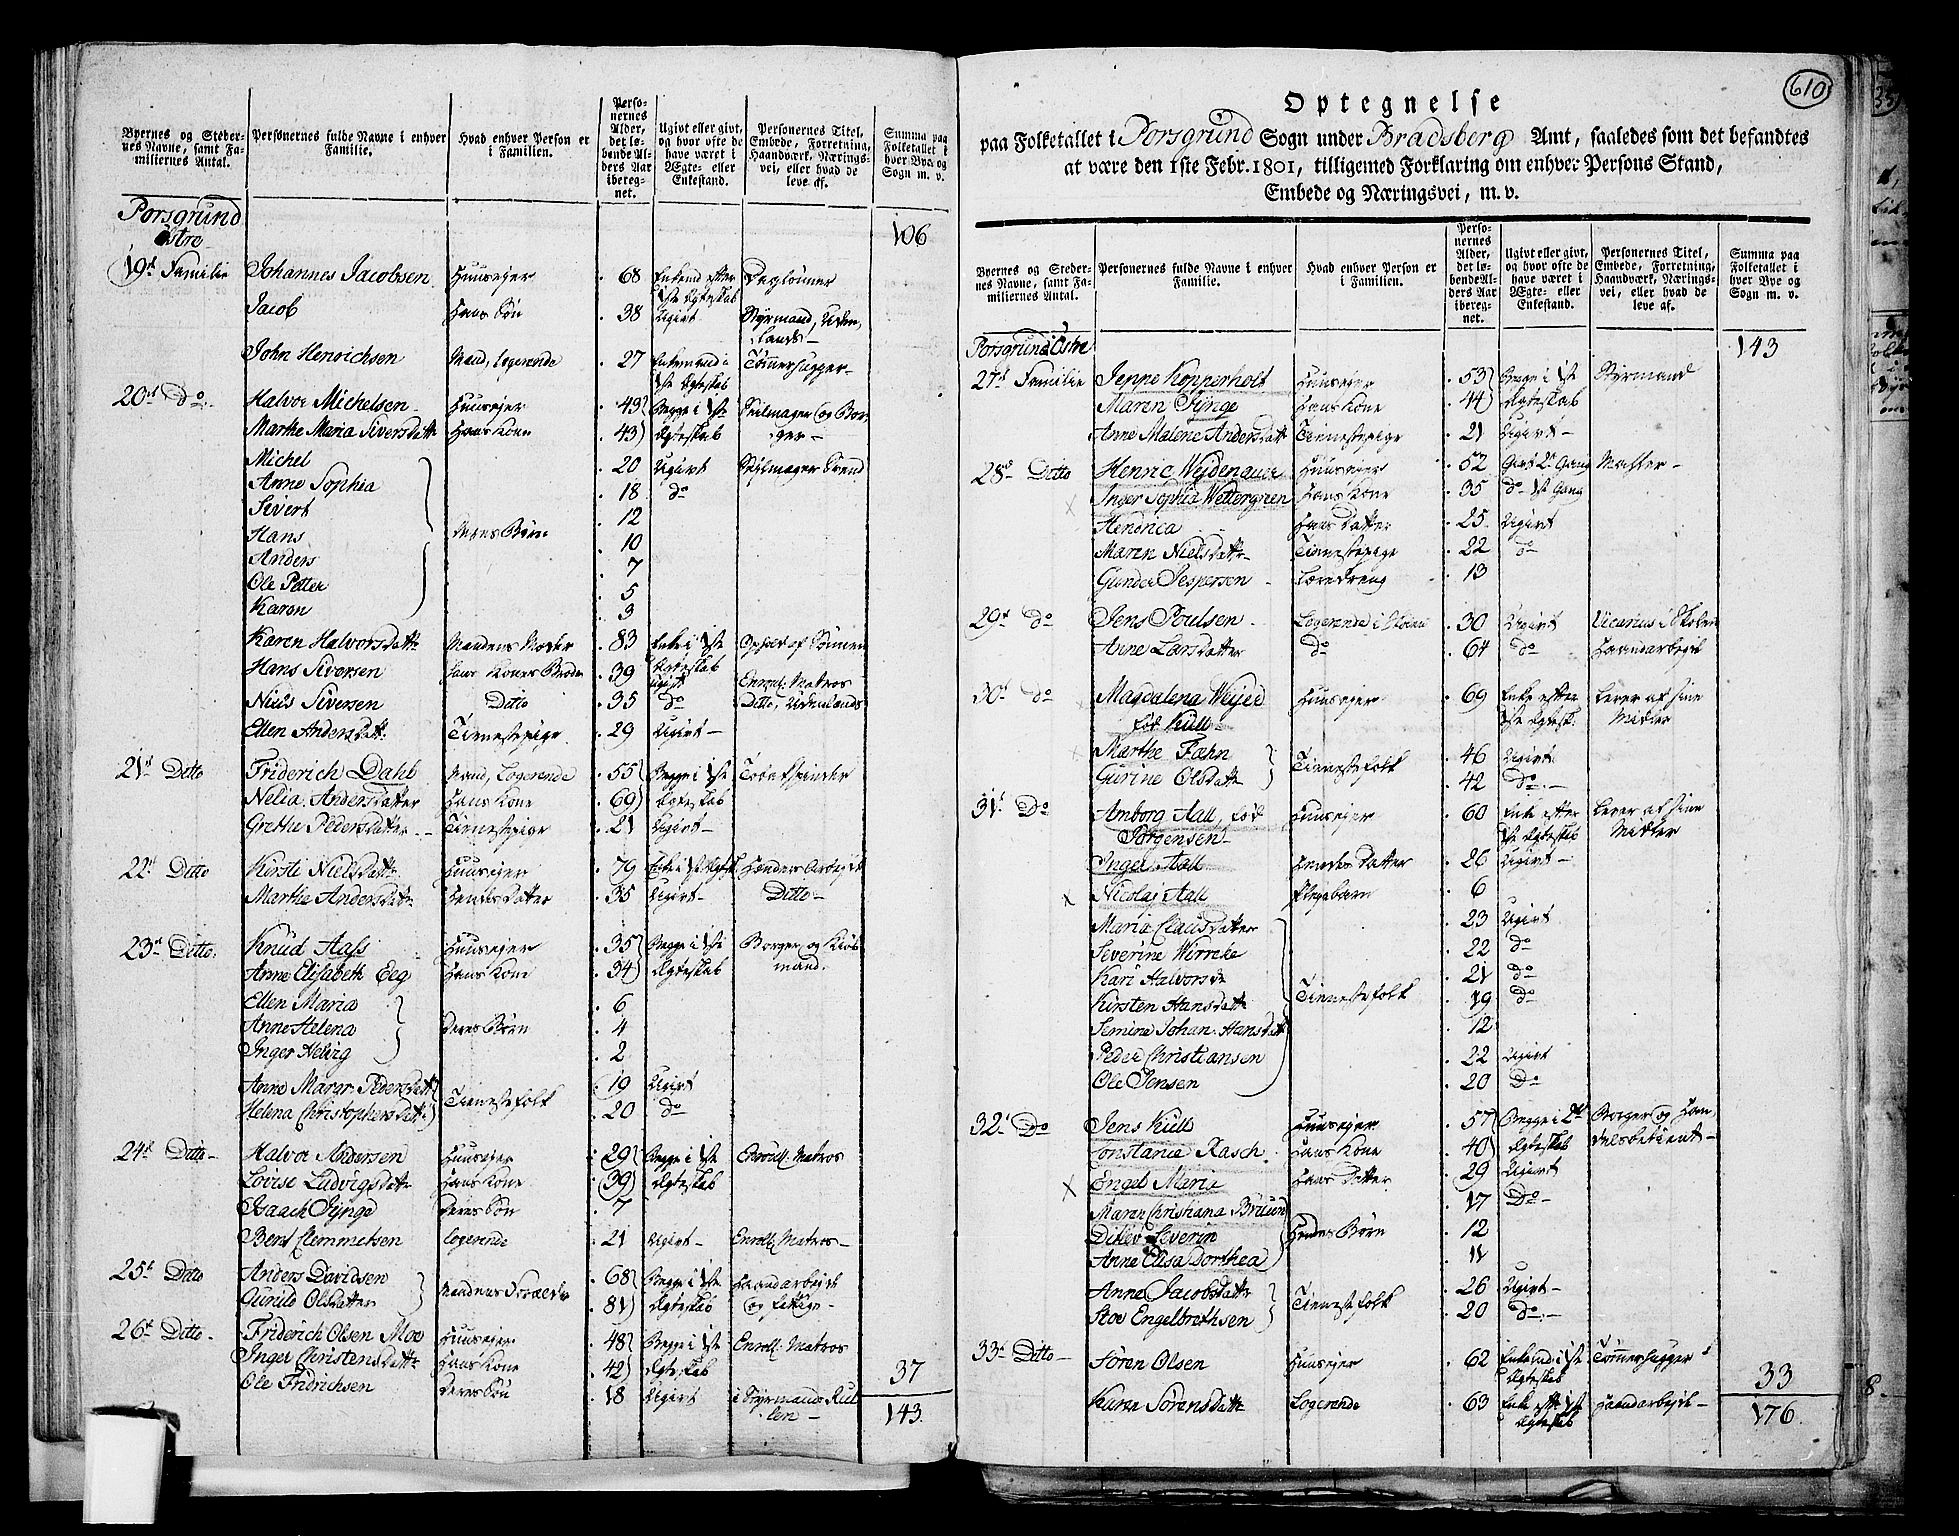 Byernes og Steder-
nes Navne, samt Fa-
miliernes Antal.
Personernes fulde Navne i enhver
Familie.
Hvad enhver Person er
i Familien.
Perso-
nernes
Alder,
det lø-
bende Al-
ders Aar
iberegnet.
Ugivt eller givt,
og hvor ofte de
have været i
Ægte- eller
Enkestand.
Personernes Titel,
Embede, Forretning,
Haandværk, Nærings-
vei, eller hvad de
leve af.
Summa paa
Folketallet i
hver Bye og
Sogn m. v.
Porsgrund
Østre
106
19d Familie Johannes Jacobsen Huuseyer 68 Enkemd efter Daglønner
1ste Ægteskab
Jacob Hans Søn 38 Ugivt Styrmand, Uden
lands
John Henrichsen Mand, Logerende 27 Enkemand i Tømmerhugger
1st Ægteskab
20d Do Halvor Michelsen Huuseyer 49 Begge i 1ste Seilmager og Bor
Marthe Maria Siversdattr Hans Kone 43 Ægteskab ger
Michel 20 Ugivt Seylmager Svend
Anne Sophia 18 do
Sivert 12
Hans Deres Børn 10
Anders 7
Ole Petter 5
Karen 3
Karen Halvorsdattr Mandens Moder 83 Enke i 1ste Ophold af Sønnen
Ægteskab
Hans Siversen Hans Kones Broder 39 Ugivt Enroul: Matros
Niels Siversen Ditto 35 do Ditto, Udenlands
Ellen Andersdattr Tienestepige 29 Ugivt
21d Ditto Friderich Dahl Mand, Logerende 55 Begge i 1ste Tobakspinder
Nelia Andersdatter Hans Kone 69 Ægteskab
Grethe Pedersdatter Tienestepige 21 Ugivt
22d Ditto Kirsti Nielsdattr Huuseyer 79 Enke i 1ste Ægtesk Hænders Arbeyde
Marthe Andersdattr Hendes Datter 35 Ugivt Ditto
23d Ditto Knud Aass Huuseyer 35 Begge i 1ste Borger og Kiøb
Anne Elisabeth Eeg Hans Kone 34 Ægteskab mand.
Ellen Maria 6
Anne Helena Deres Børn 4
Inger Helvig 2
Anne Margr: Pedersdattr 19 Ugivt
Helena Christophersdattr Tienestefolk 20 do
24d Ditto Halvor Andersen Huuseyer 29 Begge i 1ste Enroull: Matros
Lovise Ludvigsdattr Hans Kone 39 Ægteskab
Isaach Fynge Deres Søn 7
Bent Clemmetsen Logerende 21 Ugivt Enroll: Matros
25d Ditto Anders Davidsen 68 Begge i 1ste Haandarbeyde
Gunild Olsdatter Mandens Forældre 81 Ægteskab og Fattige
26d Ditto Friderich Olsen Moe Huuseyer 48 Begge i 1ste Enroll: Matros
Inger Christensdattr Hans Kone 42 Ægteskab
Ole Fridrichsen Deres Søn 18 Ugivt i Styrmands Rul
len
37
143
610
Optegnelse
paa Folketallet i Porsgrund Sogn under Bradsberg Amt, saaledes som det befandtes
at være den 1ste Febr. 1801, tilligemed Forklaring om enhver Persons Stand,
Embede og Næringsvei, m. v.
Byernes og Steder-
nes Navne, samt Fa-
miliernes Antal.
Personernes fulde Navne i enhver
Familie.
Hvad enhver Person er
i Familien.
Perso-
nernes
Alder,
det lø-
bende Al-
ders Aar
ibereg-
net.
Ugivt eller givt,
og hvor ofte de
have været i
Ægte- eller
Enkestand.
Personernes Titel,
Embede, Forretning,
Haandværk, Nærings-
vei, eller hvad de
leve af.
Summa paa
Folketallet i
hver Bye og
Sogn m. v.
Porsgrund Østre 143
27d Familie Jeppe Kopperholt Huuseyer 53 Begge i 1ste Styrmand
Maren Fynge Hans Kone 44 Ægteskab
Anne Malene Andersdattr Tienestepige 21 Ugivt
28d Ditto Henric Weydenauer Huuseyer 52 Givt 2n Gang Mahler
Inger Sophia Wettergreen Hans Kone 35 do 1st Gang
Hendrica Hans Datter 25 Ugivt
Maren Nielsdattr Tienestepige 22 do
Gunder Jespersen Læredreng 13
29d do Jens Poulsen Logerende i 30 Ugivt Vicarius i Skolen
Anne Larsdatter do 64 do Haandarbeyde
30d do Magdalena Weyer Huuseyer 69 Enke efter Lever af sine
fød Kull 1ste Ægtesk. Midler
Marthe Fæhn 46 Ugivt
Gurine Olsdattr Tienestefolk 42 do
31d Do Amborg Aall, fød Huuseyer 60 Enke efter Lever af sine
Jørgensen 1ste Ægteskab Midler
Inger Aall Hendes Datter 26 Ugivt
Nicolaj Aall Pleyebarn 6
Maria Clausdatter 23 Ugivt
Severine Wirreke 22 do
Kari Halvorsdr 21 do
Kirsten Hansdattr Tienestefolk 19 do
Semine Johan: Hansdattr 12
Peder Christiansen 22 Ugivt
Ole Jensen 20 Do
32d Do Jens Kull Huuseyer 57 Begge i 2d Borger og Han
Constance Rasch Hans Kone 40 Ægteskab delsbetient
Engel Marie Hans Datter 29 Ugivt
Maren Christiana Bruun 17 Do
Ditlev Severin Hendes Børn 12
Anne Elisa Dorthea 11
Anne Jacobsdattr 26 Ugivt
Stoe Engelbrethsen Tienestefolk 20 do
33d Ditto Søren Olsen Huuseyer 62 Enkemd i 1ste Tømmerhugger
Ægteskab
33
Karen Sørensdattr Logerende 63 Enke efter 1ste Haandarbeyde
Ægteskab
176